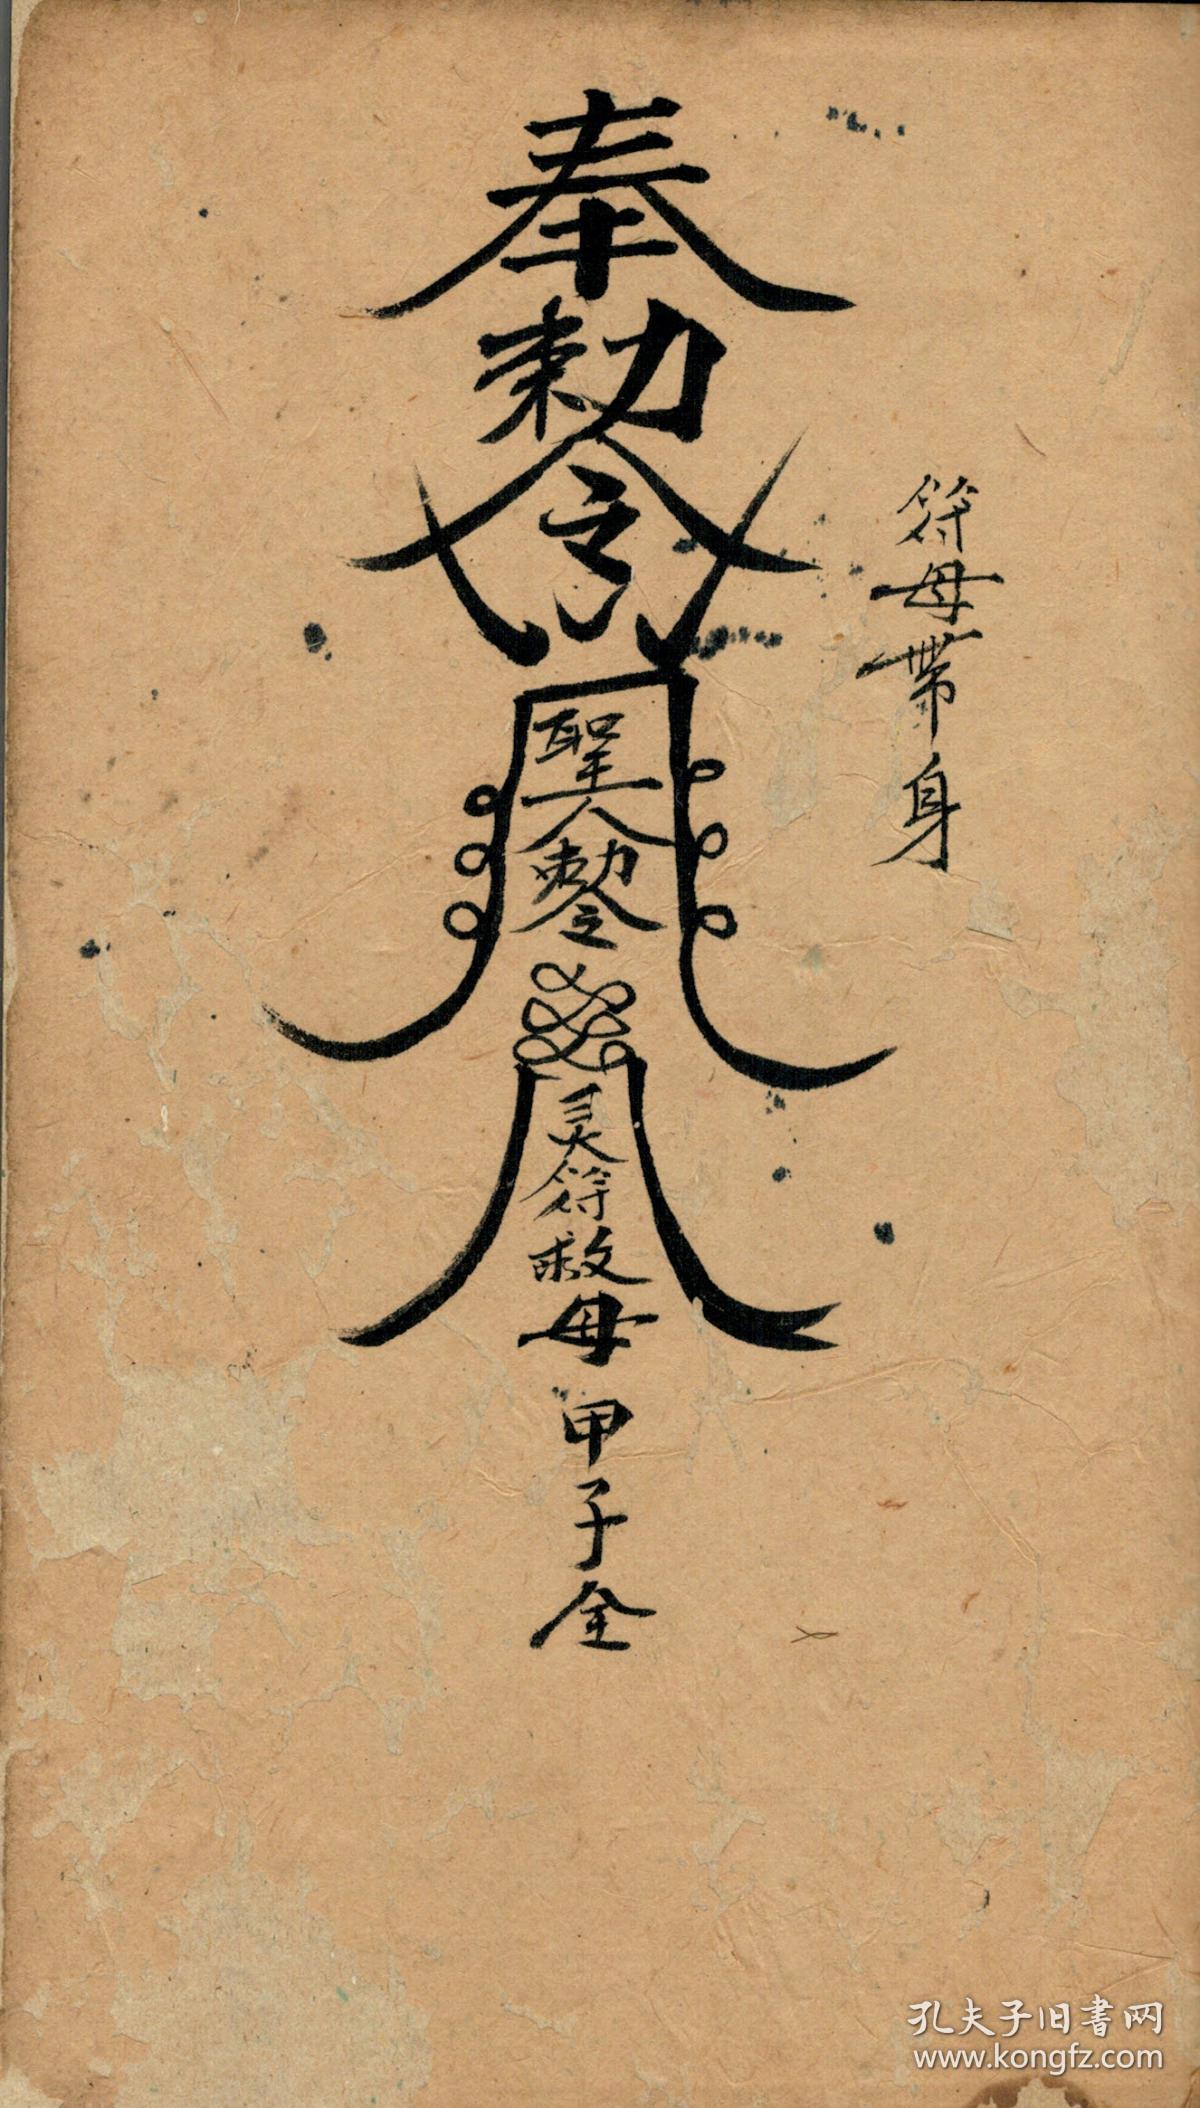 符母帶身
奉勅令
聖人勅令
灵符救母
甲子全
孔夫子旧書网
www.kongfz.com